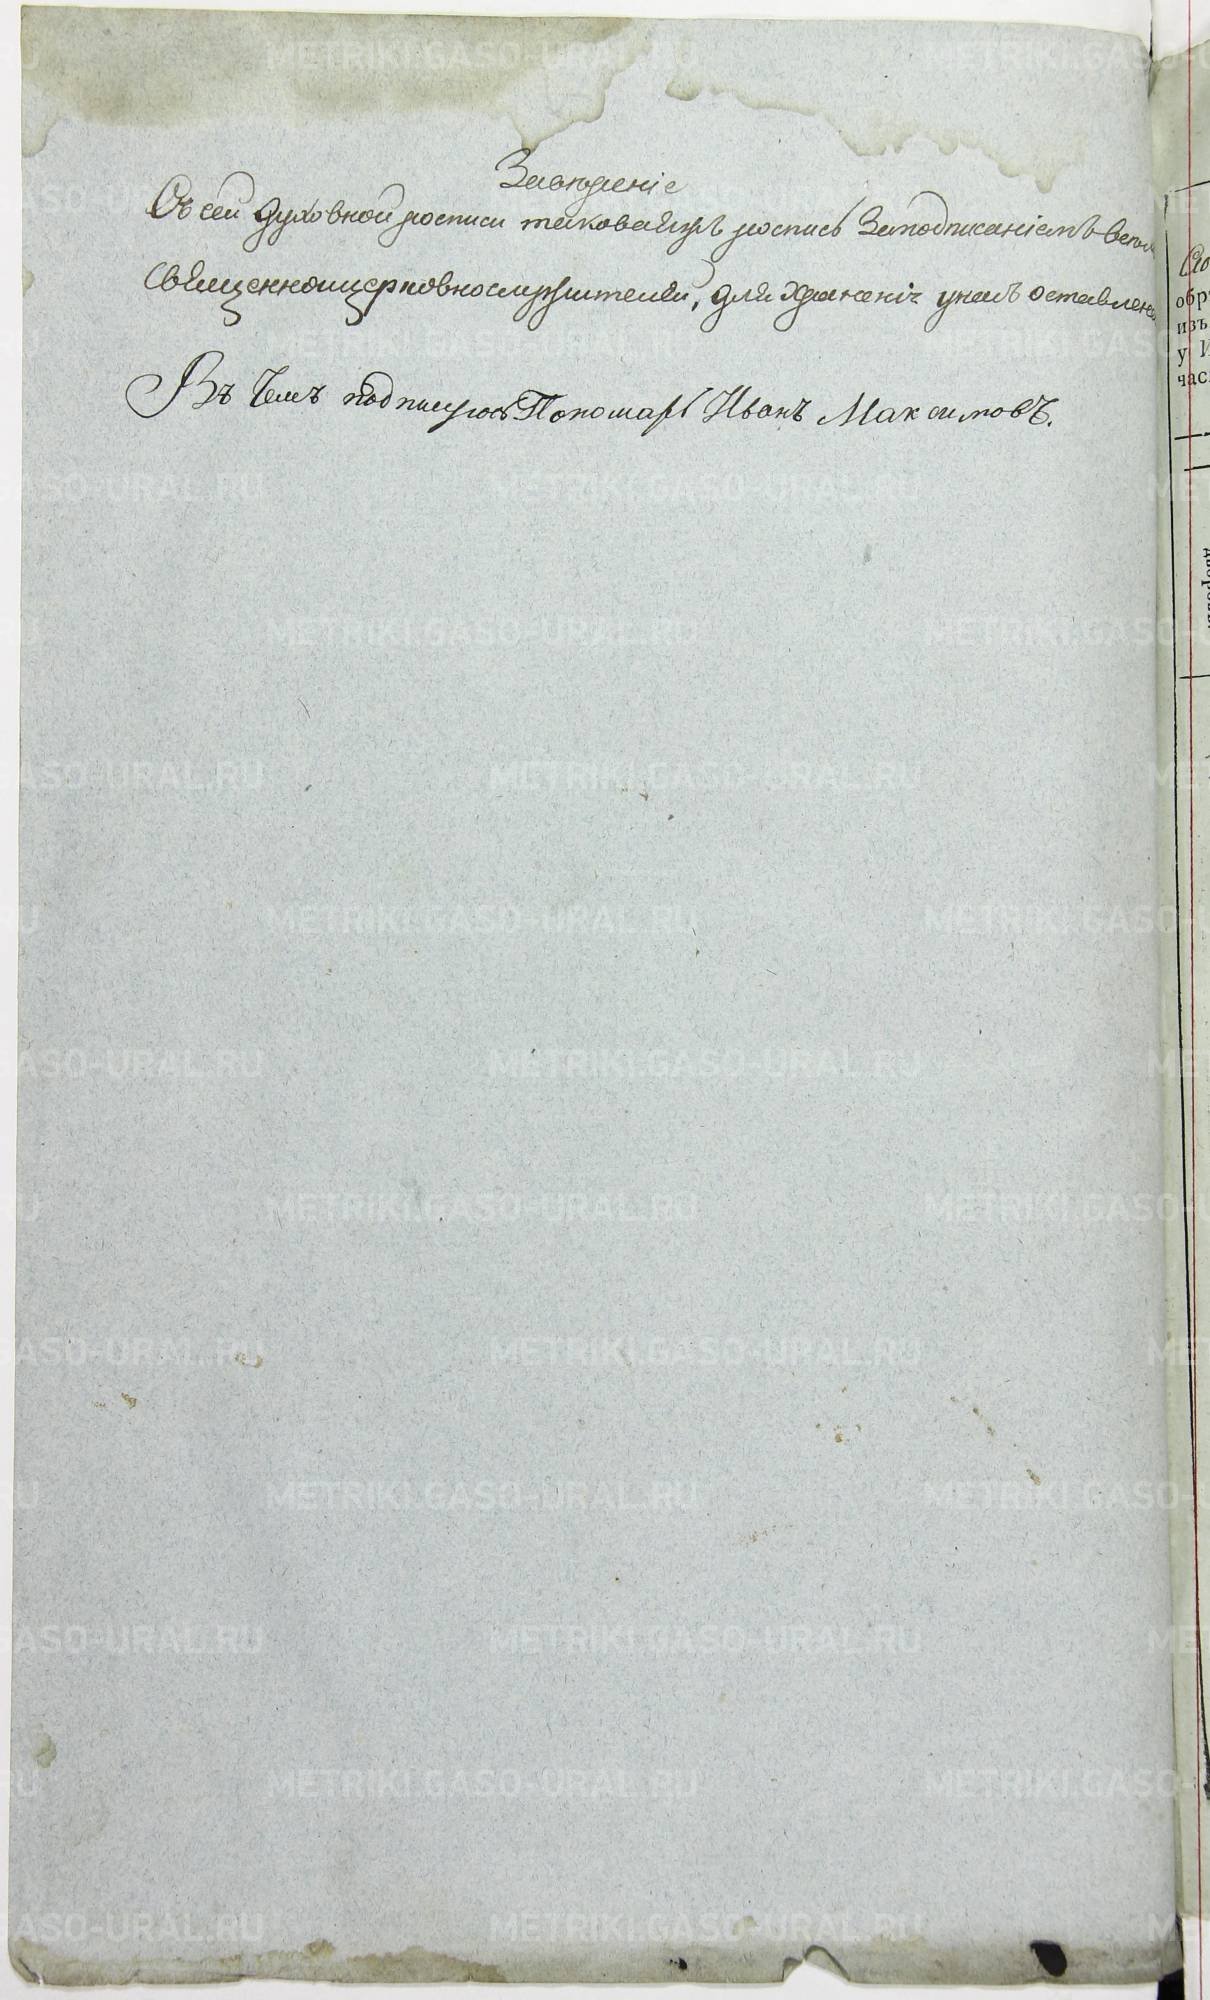 Заверение
Съ сей духовной росписи таковая жъ роспись За подписаніемъ всехъ
Священноицерковнослужителей, для хранения унасъ оставлена
Въ чемъ подписуюсь Пономарь Иванъ Максимовъ.
обр
изъ
у И
час
METRIKI.GASO-URAL.RU